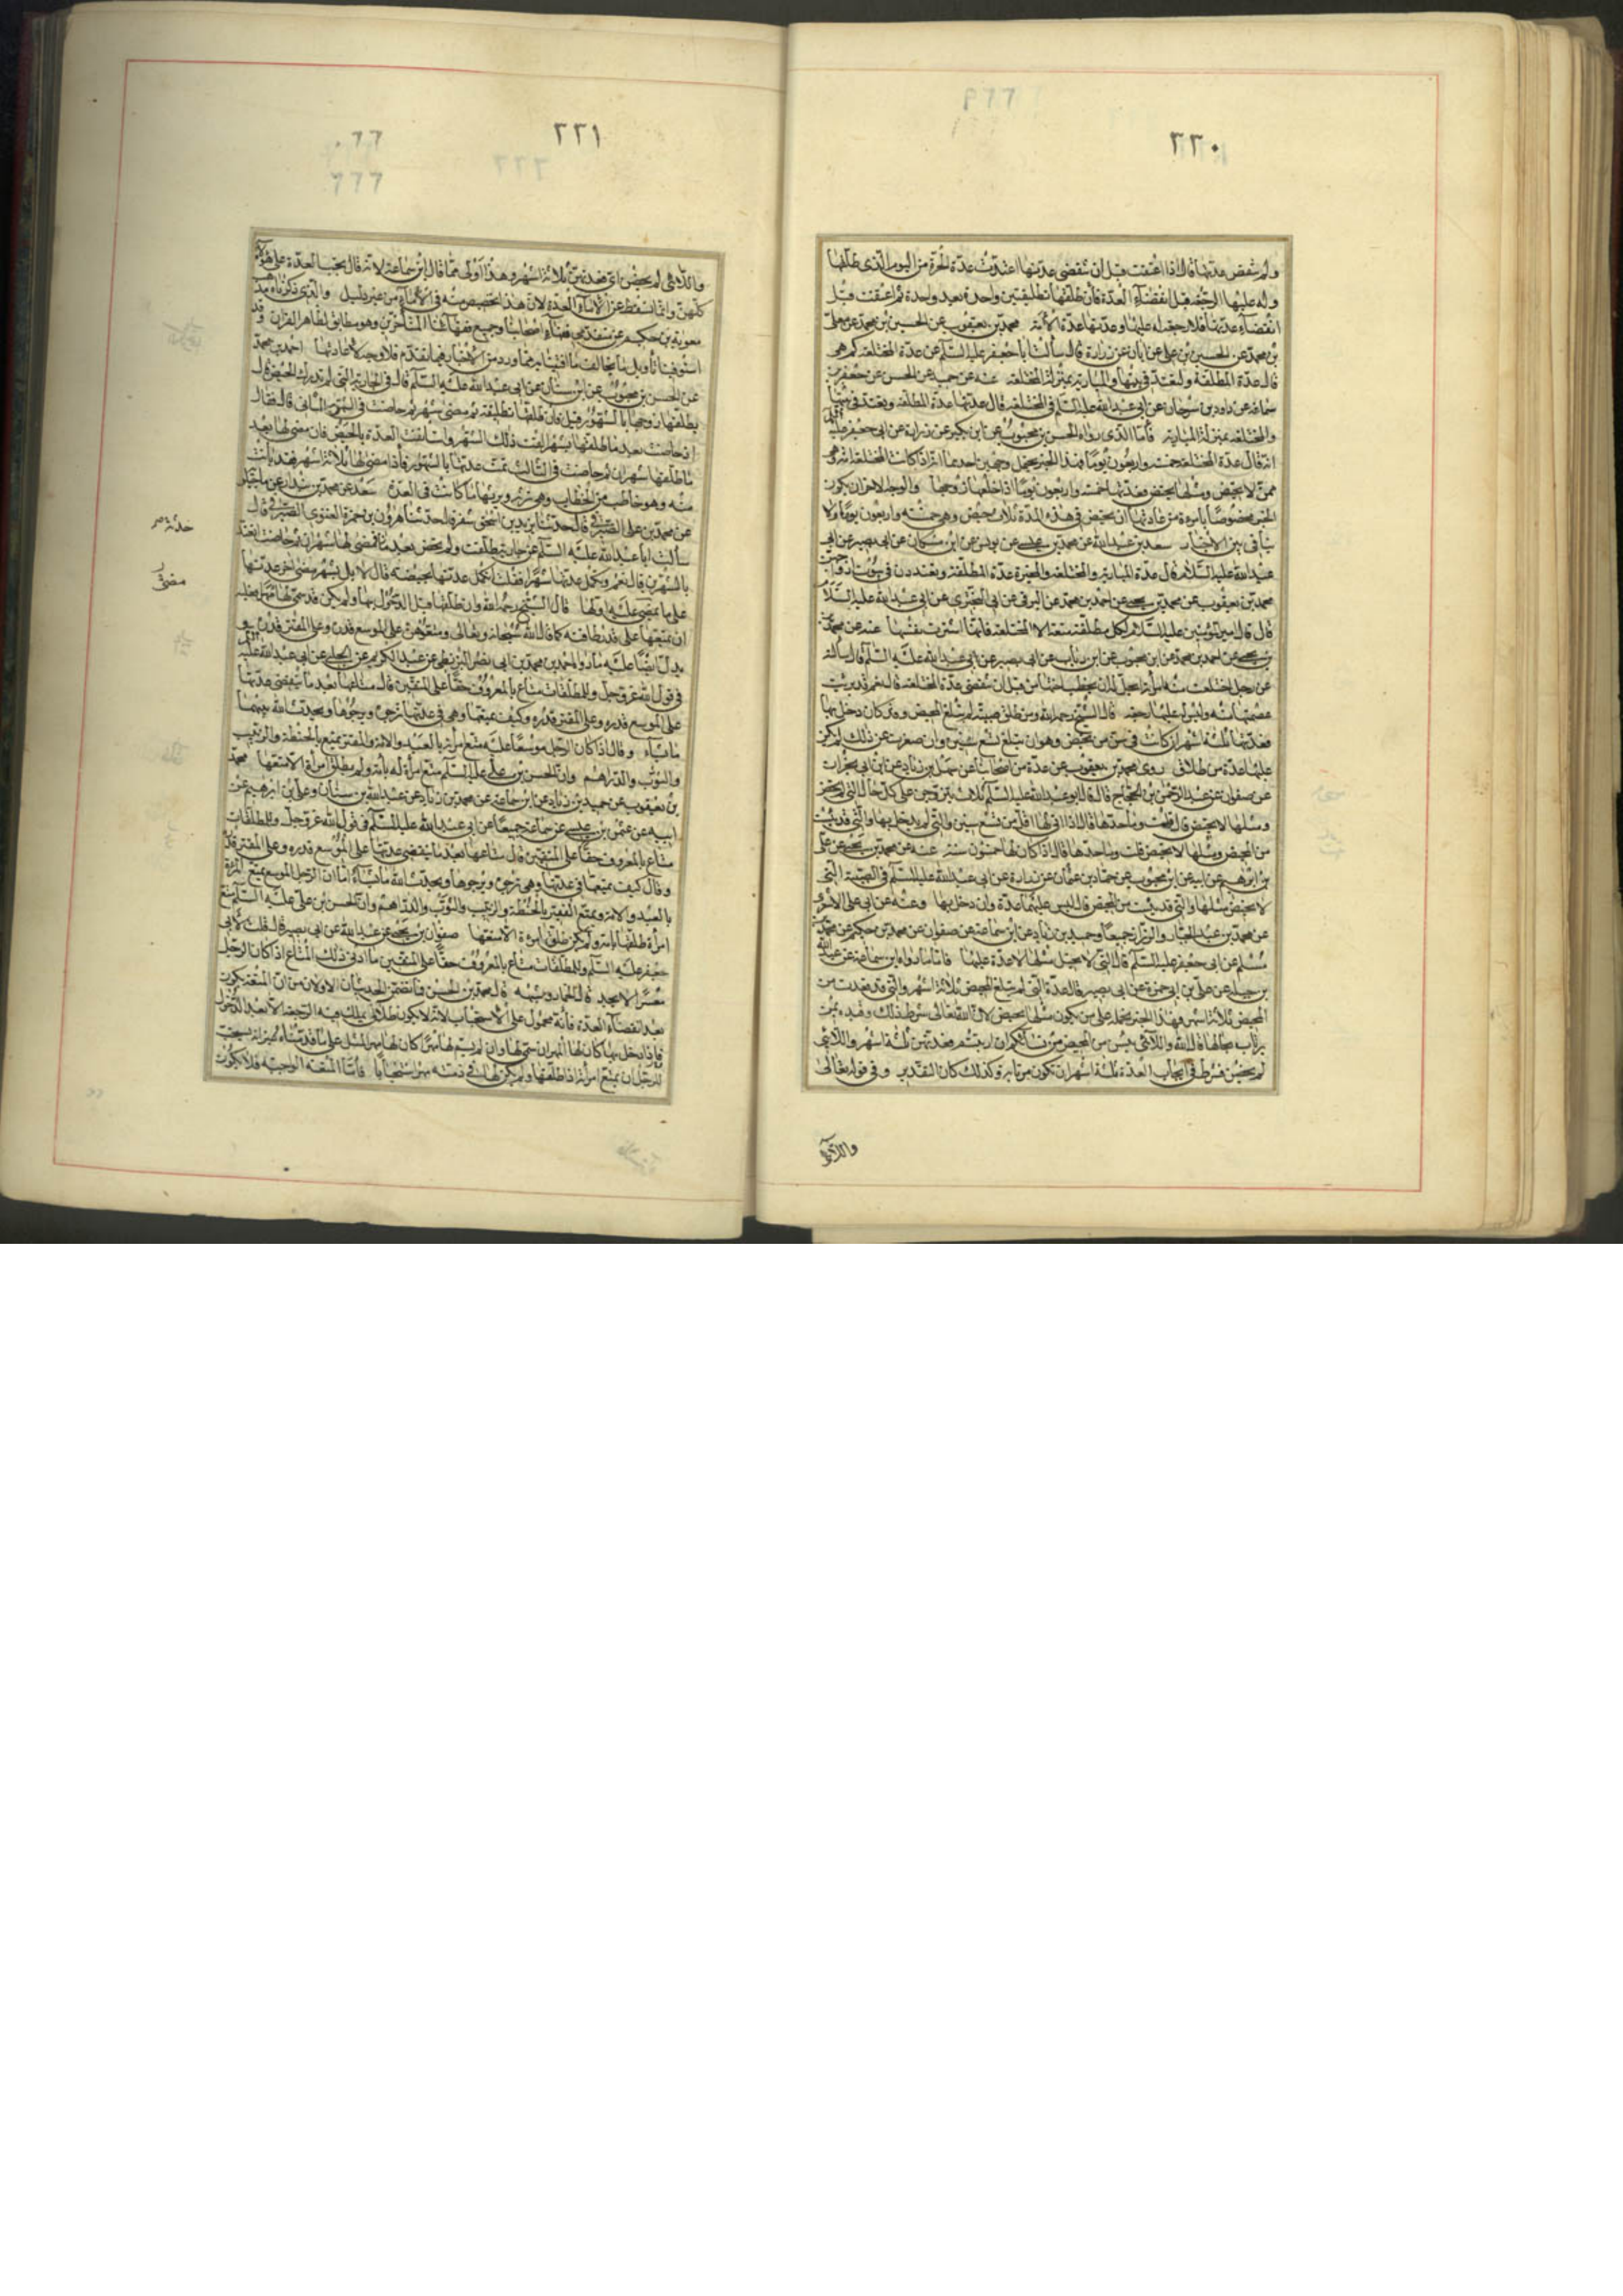 ٢٣٠
ولم تنقض عدتها قال اذا اعتقت قبل ان تنقضى عدتها اعتدت عدة الحرة من اليوم الذى طلقها
وله عليها الرجعة قبل انقضاء العدة فان طلقها تطليقتين واحدة بعد واحدة ثم اعتقت قبل
انقضاء عدتها فلا رجعة له عليها وعدتها عدة الامة محمد بن يعقوب عن الحسين بن محمد عن معلى
بن محمد عن الحسين بن على عن ابان عن زرارة قال سألت ابا جعفر عليه السلم عن عدة المختلعة كم هى
قال عدة المطلقة ولتعتد فى بيتها والمبارية بمنزلة المختلعة عنه عن حميد عن الحسن عن جعفر بن
سماعة عن داود بن سرحان عن ابى عبد الله عليه السلم فى المختلعة قال عدتها عدة المطلقة وتعتد فى بيتها
والمختلعة بمنزلة المبارية فاما الذى رواه الحسن بن محبوب عن ابن بكير عن زرارة عن ابى جعفر عليه السلم
انه قال عدة المختلعة خمسة واربعون يوما فهذا الخبر يحتمل وجهين احدهما انه اذا كانت المختلعة امة وهى
ممن لا تحيض ومثلها تحيض فعدتها خمسة واربعون يوما اذا خلعها زوجها والوجه الاخر ان يكون
الخبر مخصوصا بامرءة من عادتها ان تحيض فى هذه المدة ثلاث حيض وهو خمسة واربعون يوما ولا
تنافى بين الاخبار سعد بن عبد الله عن محمد بن عيسى عن يونس عن ابن مسكان عن ابى بصير عن ابى
عبد الله عليه السلام قال عدة المبارية والمختلعة والمخيرة عدة المطلقة ويعتددن فى بيوت ازواجهن
محمد بن يعقوب عن محمد بن يحيى عن احمد بن محمد عن البرقى عن ابى البخترى عن ابى عبد الله عليه السلام
قال قال امير المؤمنين عليه السلام لكل مطلقة متعة الا المختلعة فانها اشترت نفسها عنه عن محمد
بن يحيى عن احمد بن محمد عن ابن محبوب عن ابن رئاب عن ابى بصير عن ابى عبد الله عليه السلم قال سألته
عن رجل اختلعت منه امرأته ايحل له ان يخطب اختها من قبل ان تنقضى عدة المختلعة قال نعم قد برئت
عصمتها منه وليس له عليها رجعة قال الشيخ رحمه الله ومن طلق صبية لم تبلغ المحيض وقد كان دخل بها
فعدتها ثلثة اشهر ان كانت فى سن من تحيض وهو ان تبلغ تسع سنين وان صغرت عن ذلك لم يكن
عليها عدة من طلاق روى محمد بن يعقوب عن عدة من اصحابنا عن سهل بن زياد عن ابن ابى نجران
عن صفوان عن عبد الرحمن بن الحجاج قال قال ابو عبد الله عليه السلم ثلاث يتزوجن على كل حال التى لم تحض
ومثلها لا تحيض قال قلت وما حدها قال اذا اتى لها اقل من تسع سنين والتى لم يدخل بها والتى قد يئست
من المحيض ومثلها لا تحيض قلت وما حدها قال اذا كان لها خمسون سنة عنه عن محمد بن يحيى عن على
بن ابرهيم عن ابيه عن ابن محبوب عن حماد بن عثمان عن زرارة عن ابى عبد الله عليه السلم فى الصبية التى
لا تحيض مثلها والتى قد يئست من المحيض قال ليس عليهما عدة وان دخل بهما وعنه عن ابى على الاشعرى
عن محمد بن عبد الجبار والرزاز جميعا وحميد بن زياد عن ابن سماعة عن صفوان عن محمد بن حكيم عن محمد بن
مسلم عن ابى جعفر عليه السلم قال التى لا تحبل مثلها لا عدة عليها فاما ما رواه ابن سماعة عن عبد الله
بن جبلة عن على بن ابى حمزة عن ابى بصير قال عدة التى لم تبلغ المحيض ثلاثة اشهر والتى قد قعدت من
المحيض ثلاثة اشهر فهذا الخبر نحمله على من يكون مثلها تحيض لان الله تعالى شرط ذلك وقيده بمن
يرتاب بحالها قال الله واللائى يئسن من المحيض من نسائكم ان ارتبتم فعدتهن ثلثة اشهر واللائى
لم يحضن فشرط فى ايجاب العدة ثلثة اشهر ان تكون مرتابة وكذلك كان التقدير وفى قوله تعالى
واللائى
٢٣١
واللائى لم يحضن اى فعدتهن ثلاثة اشهر وهذا اولى مما قال ابن سماعة لانه قال تجب العدة على هؤلاء
كلهن وانما تسقط عن الاماء العدة لان هذا تخصيص منه فى الاماء من غير دليل والذى ذكرناه مذهب
معوية بن حكيم من متقدمى فقهاء اصحابنا وجميع فقهائنا المتأخرين وهو مطابق لظاهر القران وقد
استوفينا تأويل ما يخالف ما افتينا به مما ورد من الاخبار فيما تقدم فلا وجه لاعادتها احمد بن محمد
عن الحسن بن محبوب عن ابن سنان عن ابى عبد الله عليه السلم قال فى الجارية التى لم تدرك الحيض قال
يطلقها زوجها بالشهور قيل فان طلقها تطليقة ثم مضى شهر ثم حاضت فى الشهر الثانى قال فقال
اذا حاضت بعد ما طلقها بشهر القت ذلك الشهر واستأنفت العدة بالحيض فان مضى لها بعد
ما طلقها شهران ثم حاضت فى الثالث تمت عدتها بالشهور فاذا مضى لها ثلاثة اشهر فقد بانت
منه وهو خاطب من الخطاب وهى ترثه ويرثها ما كانت فى العدة سعد عن محمد بن بندار عن ماجيلويه
عن محمد بن على الصيرفى قال حدثنا يزيد بن اسحق شعر قال حدثنا هرون بن حمزة الغنوى الصيرفى قال
سألت ابا عبد الله عليه السلم عن جارية طلقت ولم تحض بعد فمضى لها شهران ثم حاضت اتعتد
بالشهرين قال نعم وتكمل عدتها شهرا فقلت اتكمل عدتها بحيضة قال لا بل بشهر مضى اخر عدتها
على ما يمضى عليه اولها قال الشيخ رحمه الله وان طلقها قبل الدخول بها ولم يكن قد سمى لها مهرا فعليه
ان يمتعها على قدر طاقته كما قال الله سبحانه وتعالى ومتعوهن على الموسع قدره وعلى المقتر قدره
يدل ايضا عليه ما رواه احمد بن محمد بن ابى نصر البزنطى عن عبد الكريم عن الحلبى عن ابى عبد الله عليه السلم
فى قول الله عز وجل وللمطلقات متاع بالمعروف حقا على المتقين قال متاعها بعد ما تنقضى عدتها
على الموسع قدره وعلى المقتر قدره وكيف يمتعها وهى فى عدتها ترجوه ويرجوها ويحدث الله بينهما
ما يشاء وقال اذا كان الرجل موسعا عليه متع امرأته بالعبد والامة والمقتر يمتع بالحنطة والزبيب
والثوب والدراهم وان الحسن بن على عليه السلم متع امرأة له بامة ولم يطلق امرأة الا متعها محمد
بن يعقوب عن حميد بن زياد عن ابن سماعة عن محمد بن زياد عن عبد الله بن سنان وعلى بن ابرهيم عن
ابيه عن عثمن بن عيسى عن سماعة جميعا عن ابى عبد الله عليه السلم فى قول الله عز وجل وللمطلقات
متاع بالمعروف حقا على المتقين قال متاعها بعد ما تنقضى عدتها على الموسع قدره وعلى المقتر قدره
وقال كيف يمتعها فى عدتها وهى ترجوه ويرجوها ويحدث الله ما يشاء اما ان الرجل الموسع يمتع المرأة
بالعبد والامة ويمتع الفقير بالحنطة والزبيب والثوب والدراهم وان الحسن بن على عليه السلم متع
امرأة طلقها بامة ولم يكن يطلق امرءة الا متعها صفوان بن يحيى عن عبد الله عن ابى بصير قال قلت لابى
جعفر عليه السلم وللمطلقات متاع بالمعروف حقا على المتقين ما ادنى ذلك المتاع اذا كان الرجل
معسرا لا يجد قال الخمار وشبهه قال محمد بن الحسن فما تضمن الحديثان الاولان من ان المتعة تكون
بعد انقضاء العدة فانه محمول على الاستحباب لانه لا يكون طلاق يملك فيه الرجعة الا بعد الدخول
فاذا دخل بها كان لها المهر ان سمى لها وان لم يسم لها مهرا كان لها مهر المثل على ما قدمناه غير انه يستحب
للرجل ان يمتع امرأته اذا طلقها ولم يكن لها فى ذمته مهر استحبابا فاما المتعة الواجبة فلا تكون